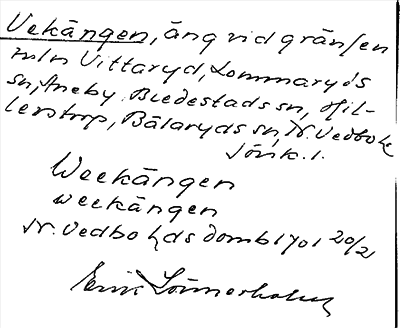 Vekängen, äng vid gränsen
mln Vittaryd, Lommaryds
sn, Aneby, Bredestads sn, Hil-
lerstorp, Bälaryds sn, N. Vedbo hd
Jönk. l.
Weekängen
weekängen
N. Vedbo hds domb 1701 20/2
Erik